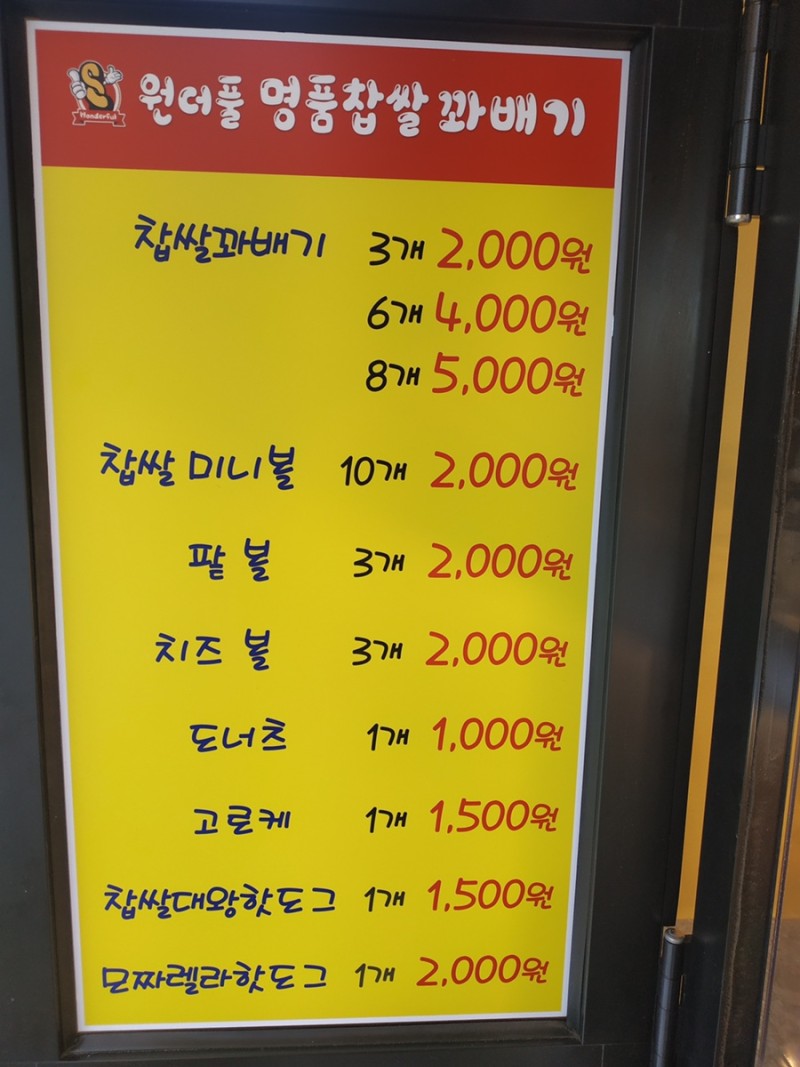 Wonderful
원더풀 명품찹쌀 꽈배기
찹쌀꽈배기 3개 2,000원
6개 4,000원
8개 5,000원
찹쌀 미니볼 10개 2,000원
팥 볼 3개 2,000원
치즈 볼 3개 2,000원
도너츠 1개 1,000원
고로케 1개 1,500원
찹쌀대왕핫도그 1개 1,500원
모짜렐라핫도그 1개 2,000원